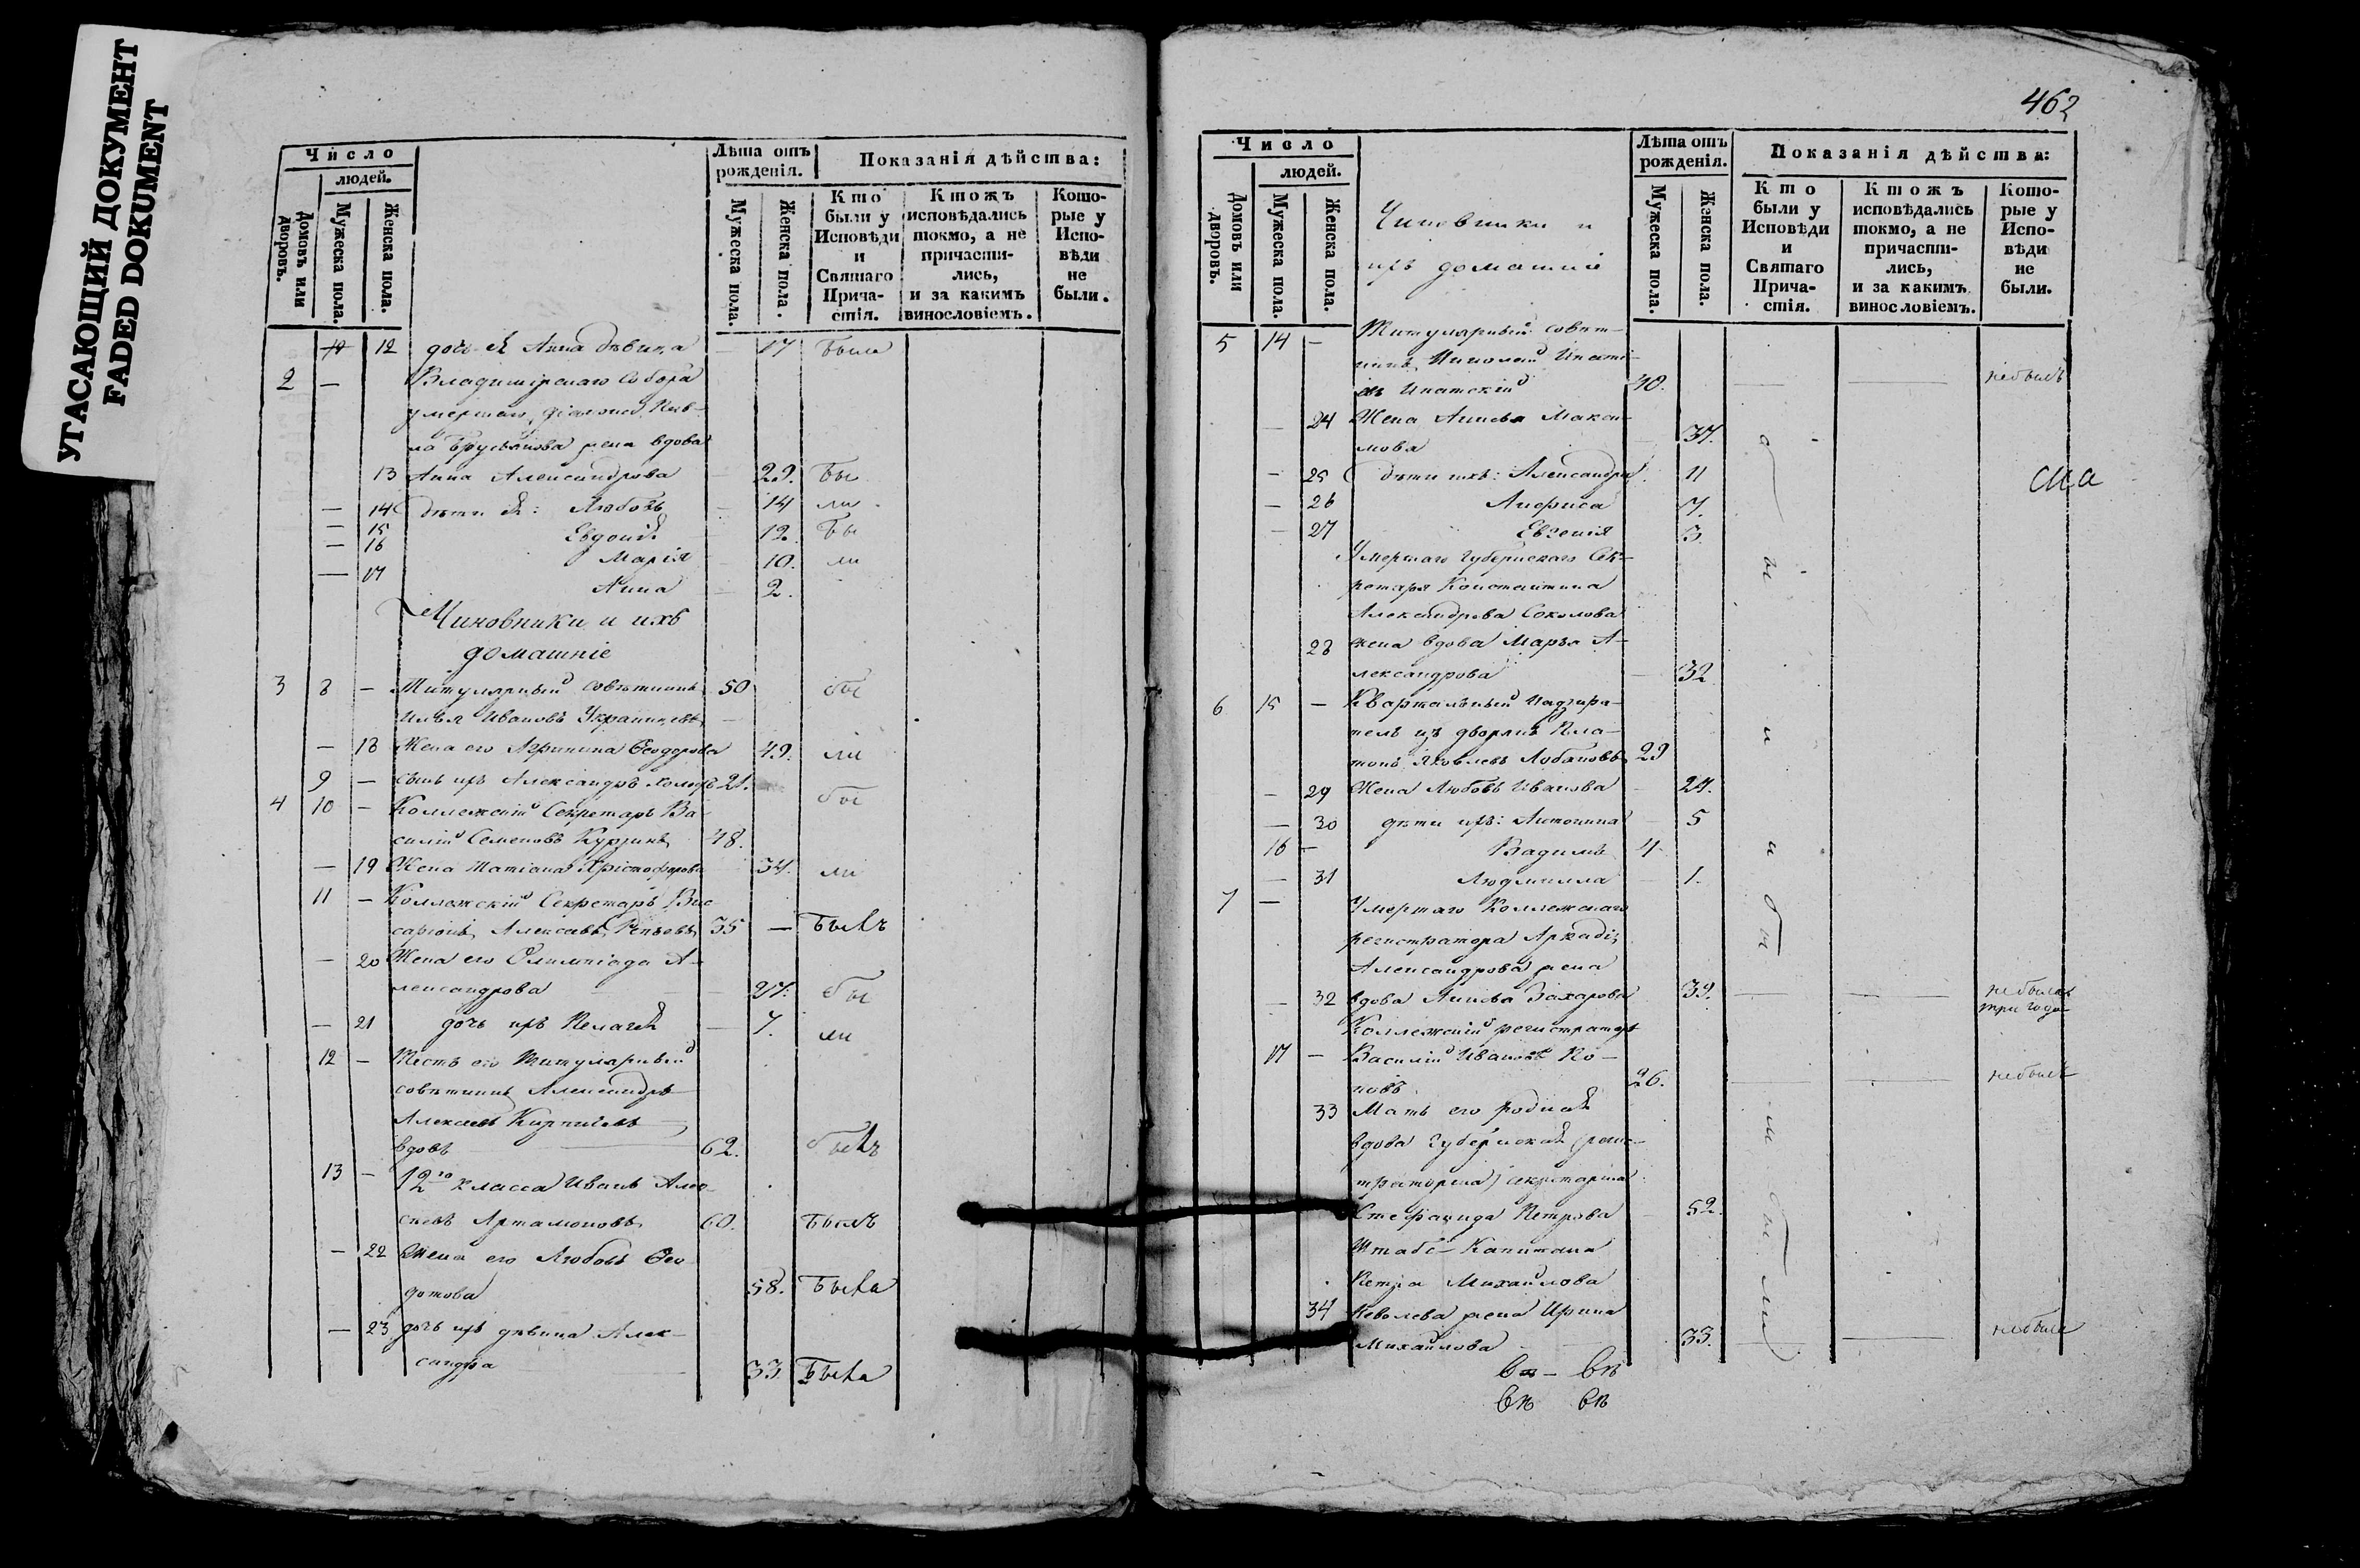 УГАСАЮЩИЙ ДОКУМЕНТ
FADED DOKUMENT
Число
людей.
Домовъ или дворовъ.
Мужеска пола.
Женска пола.
Лѣта отъ рожденія.
Мужеска пола.
Женска пола.
Показанія дѣйства:
Кто были у Исповѣди и Святаго Прича-стія.
Ктожъ исповѣдались токмо, а не причасти-лись, и за какимъ винословіемъ.
Кото-рые у Испо-вѣди не были.
12 дочь ея Анна дѣвица 17 была
2 — Владимірскаго Собора
умершаго діакона Пав-
ла жена вдова
13 Анна Александрова 29. бы
— 14 дѣти ея: Любовь 14 ли
— 15 Евдокія 12. бы
— 16 Марія 10. ли
— 17 Анна 2.
Чиновники и ихъ
домашніе
3 8 — Титулярный совѣтникъ 50 бы
Илья Ивановъ
— 18 Жена его Агрипина Ѳеодорова 49. ли
9 — сынъ ихъ Александръ холостъ 21.
4 10 — Коллежскій Секретарь Ва- бы
силій Семеновъ 48.
— 19 Жена Татіана Христофорова 34. ли
11 — Коллежскій Секретарь Вис-
саріонъ Алексѣевъ 35 — былъ
— 20 Жена его Олимпіада А-
лександрова 27. бы
— 21 дочь ихъ Пелагея 7. ли
12 — Тесть его Титулярный
совѣтникъ Александръ
Алексѣевъ
вдовъ 62. былъ
13 — 12го класса Иванъ Алек-
сѣевъ Артамоновъ 60. былъ
— 22 Жена его Любовь Ѳео-
дотова 58. была
— 23 дочь ихъ дѣвица Алек-
сандра 33 была
462
Число
людей.
Домовъ или дворовъ.
Мужеска пола.
Женска пола.
Чиновники и
ихъ домашніе
Лѣта отъ рожденія.
Мужеска пола.
Женска пола.
Показанія дѣйства:
Кто были у Исповѣди и Святаго Прича-стія.
Ктожъ исповѣдались токмо, а не причасти-лись, и за какимъ винословіемъ.
Кото-рые у Испо-вѣди не были.
5 14 — Титулярный совѣт-
никъ Николай
40. — — небылъ
— 24 Жена Макси-
мова 37.
— 25 дѣти ихъ: Александра 11
— 26 Лариса 7.
— 27 Евгенія 3.
Умершаго Губернскаго Сек-
ретаря Константина
Александрова Соколова
28 жена вдова Марѳа А-
лександрова 32
6 15 — Квартальный надзира-
тель изъ дворянъ Пла-
тонъ Яковлевъ Лобановъ 29
— 29 Жена Любовь Иванова 24.
— 30 дѣти ихъ: Антонина 5
16 — Вадимъ 4
— 31 Людмилла 1.
7 — Умершаго Коллежскаго
регистратора Аркадія
Александрова жена
— 32 вдова Захарова 39. — — небыла
три года
Коллежскій регистраторъ
17 — Василій Ивановъ По-
повъ 26. — — небылъ
33 Мать его родная
вдова Губернская
секретарша
Стефанида Петрова 52.
Штабсъ-Капитана
Петра Михайлова
34 жена Ирина
Михайлова 33. — небыла